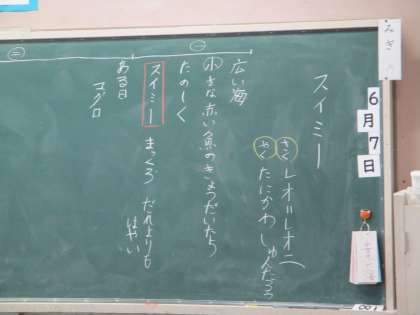 みぎ
6月7日
スイミー
さく レオ=レオニ
やく たにかわ しゅんたろう
一
広い海
小さな赤い魚のきょうだいたち
たのしく
スイミー まっくろ だれよりも
はやい
二
ある日
マグロ